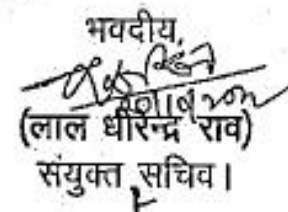 भवदीय,
(लाल धीरेन्द्र राव)
संयुक्त सचिव।